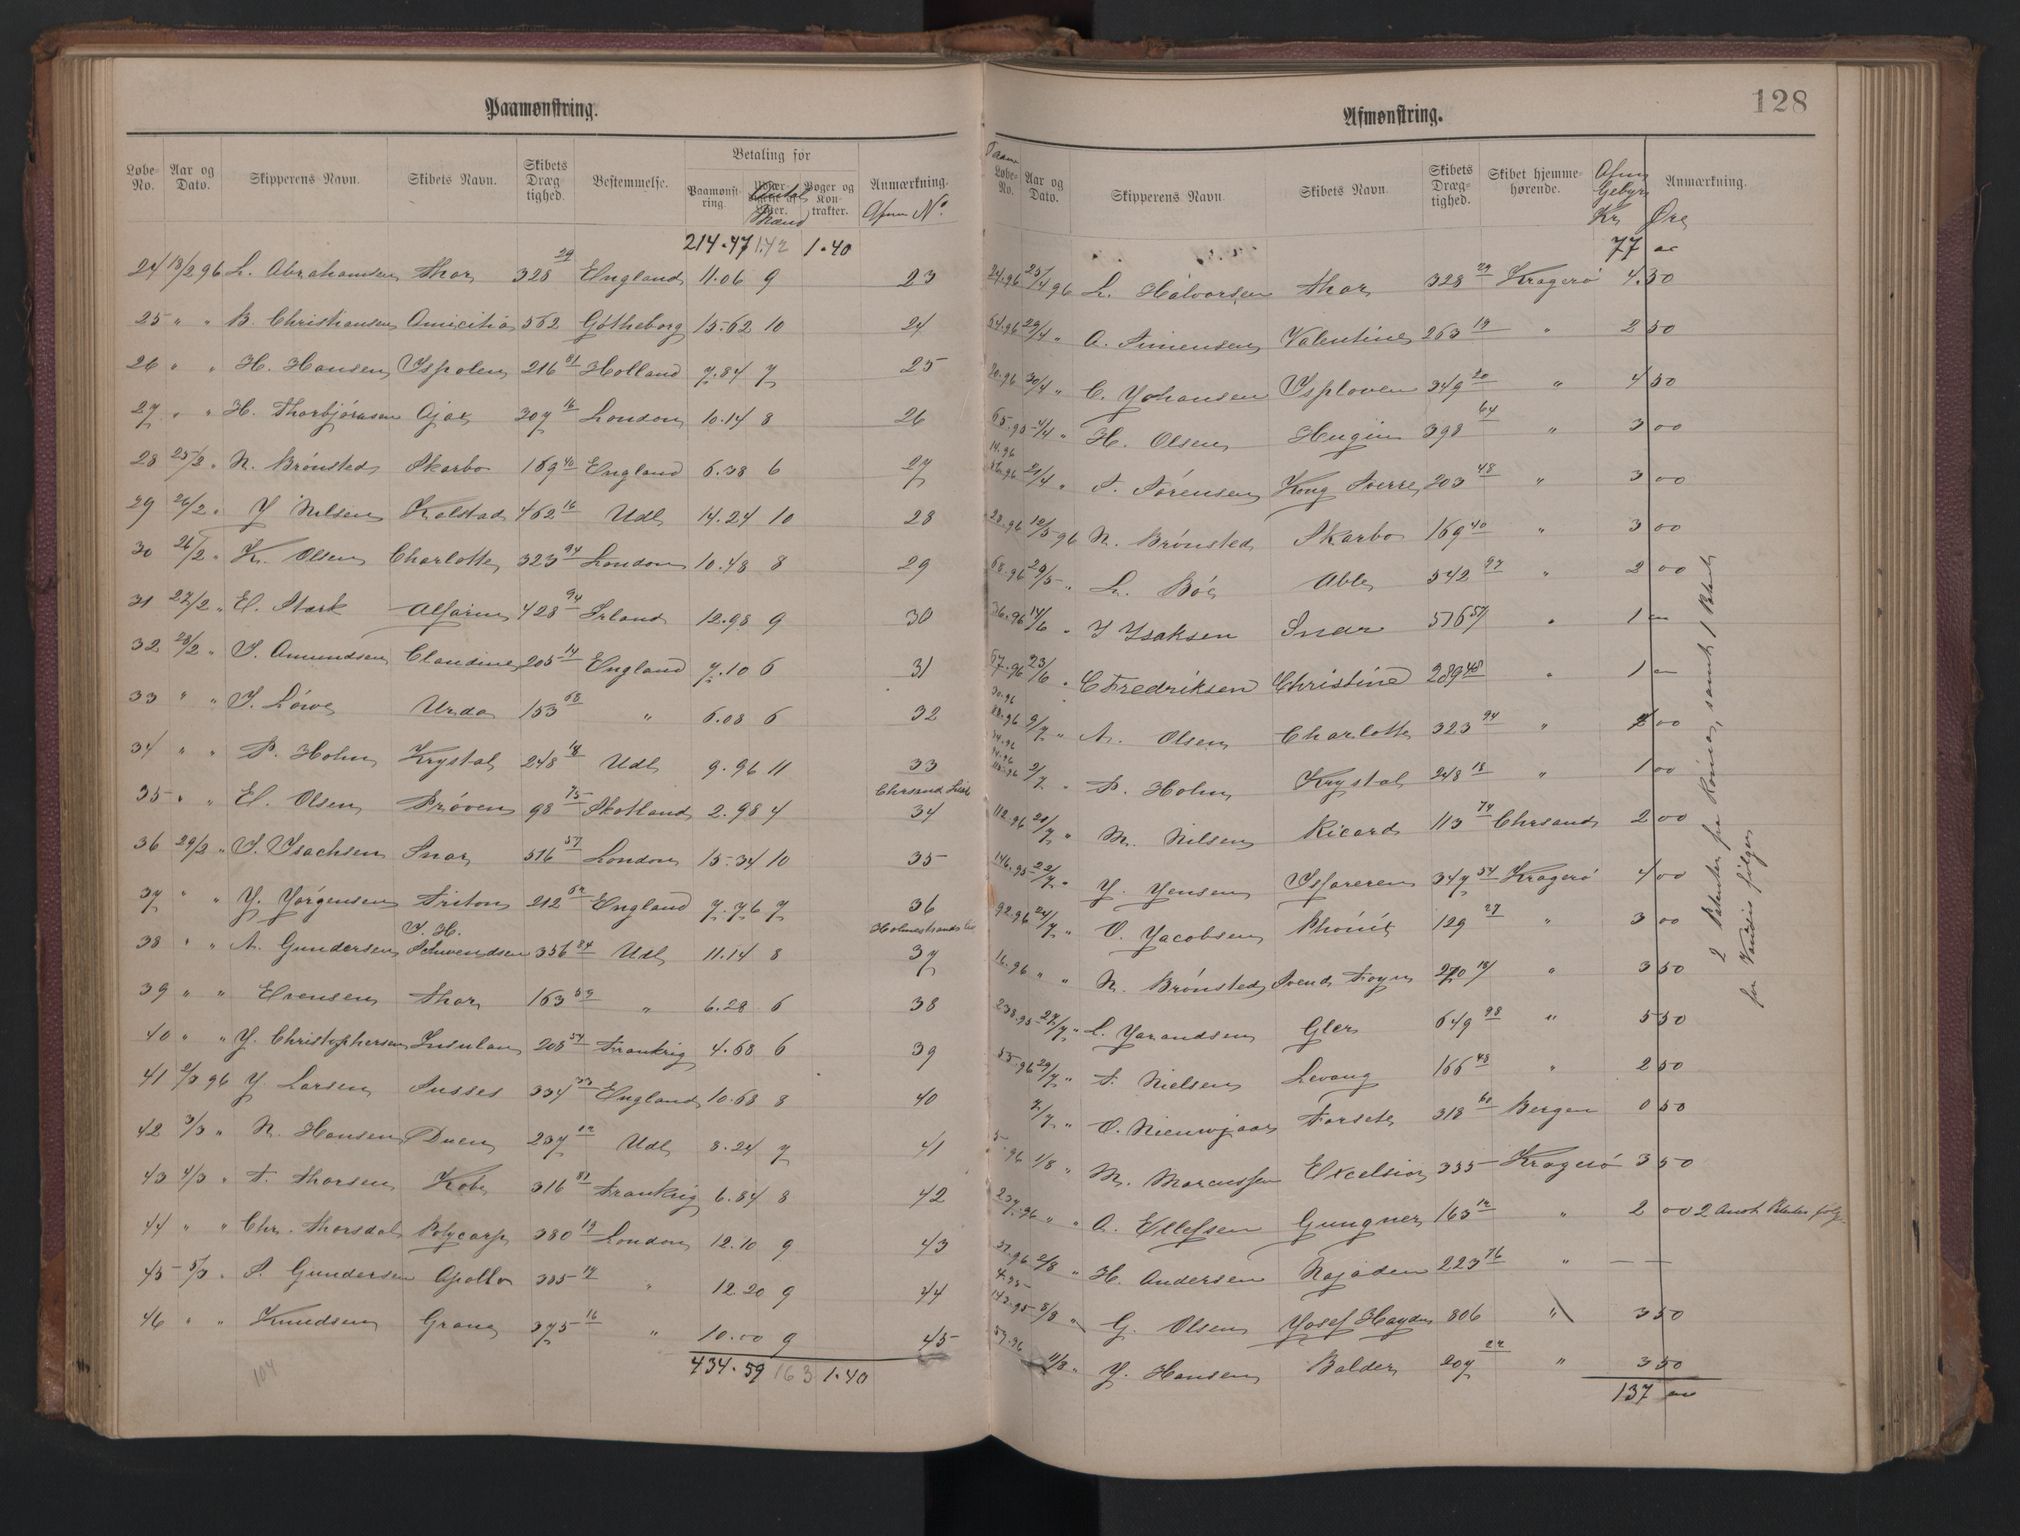 128
Paamønstring.
Løbe-No. Aar og Dato. Skipperens Navn. Skibets Navn. Skibets Dræg tighed. Bestemmelse. Betaling for Paamønst-ring. Boger og Kon-trakter. Anmærkning.
Antal Mænd Afmn No.
214.47 142 1.40
24 18/2 96 L. Abrahamsen Thor 328 29 England 11.06 9 23
25 " " B. Christiansen Amicitia 562 Gøtheborg 15-62 10 24
26 " " H. Hansen Ispolen 216 81 Holland 7.84 7 25
27 " " H. Thorbjörnsen Ajax 307 16 London 10.14 8 26
28 25/2 " N. Brønsted Skarbo 169 40 England 6.38 6 27
29 26/2 " J Nilsen Kalstad 462 16 Udl 14.24 10 28
30 26/2 " K. Olsen Charlotte 323 94 London 10.48 8 29
31 27/2 " E. Stærk Alfarin 428 94 Irland 12.98 9 30
32 28/2 " I. Amundsen Claudine 205 14 England 7.10 6 31
33 " " I. Løwe Urda 153 68 " 6.08 6 32
34 " " P. Holm Krystal 248 18 Udl 9.96 11 33
35 " " E. Olsen Prøven 98 75 Skotland 2.98 4 Chrsand 34
36 29/2 " I. Isachsen Snar 516 57 London 15-34 10 35
37 " " J. Jørgensen Triton 212 62 England 7.76 7 36
38 " " A. Gundersen I. H. Schwendsen 356 84 Udl 11.14 8 Holmestrands 37
39 " " Evensen Thor 163 69 " 6.28 6 38
40 " " J. Christophersen Insulan 208 54 Frankrig 4.68 6 39
41 2/3 96 J. Larsen Susses 334 33 England 10.68 8 40
42 3/3 " N. Hansen Duen 237 12 Udl 8.24 7 41
43 4/3 " T. Thorsen Kobe 316 81 Frankrig 6.84 8 42
44 " " Chr. Thorsdal Polycarp 380 19 London 12.10 9 43
45 5/3 " S. Gundersen Apollo 385 14 " 12.20 9 44
46 " " Knudsen Grane 375 16 " 10.00 9 45
104 434.59 163 1.40
Afmønstring.
Paam Løbe-No. Aar og Dato. Skipperens Navn. Skibets Navn. Skibets Dræg-tighed. Skibet hjemme-hørende. Afmn Gebyr Kr Øre Anmærkning.
77 00
24.96 25/4 96 L. Halvorsen Thor 328 29 Kragerø 4.50
54.96 29/4 " A. Simensen Valentine 263 19 " 2 50
20.96 30/4 " C. Johansen Isploven 349 20 " 4 50
65.95 4/4 " H. Olsen Hugin 398 64 " 3 00
14.96
86.96 21/4 " S. Sørensen Kong Sverre 203 48 " 3 00
28.96 12/5 96 N. Brønsted Skarbo 169 40 " 3 00
68.96 29/5 " L. Böe Able 542 97 " 2 00
36.96 14/6 " I Isaksen Snar 516 57 " 1 00
67.96 23/6 " C Fredriksen Christine 289 48 " 1 00
30.96
88.96 9/7 " A. Olsen Charlotte 323 94 " 2 00
34.96
94.96
2/7 " P. Holm Krystal 248 18 " 1 00
112.96 20/7 " M. Nilsen Ricard 113 74 Chrsand 2 00
146.95 22/7 " J. Jensen Isfareren 347 54 Kragerø 4 00
92.96 24/7 " O. Jacobsen Phönix 129 27 " 3 00
16.96 " " N. Brønsted Svend Foyn 270 18 " 3 50
238.95 27/7 " L. Jarandsen Gler 649 98 " 5 50
55.96 29/7 " T. Nielsen Levang 166 48 " 2 50
7/7 " O. Nieuwjaar Forsete 318 60 Bergen 0 50
5.96 1/8 " M. Marcussen Excelsior 335 Kragerø 3 50
237.96 " " A. Ellefsen Gungner 163 12 " 2 00 2 Anst. Patenter følg.
37.96 2/8 " H. Andersen Najaden 223 76 " — —
4.95
143.95 8/8 " G. Olsen Josef Haydn 806 " 3 50
59.96 11/8 " J. Hansen Balder 207 22 " 3 50
137 00
2 Patenter fra Kønig, samt 1 Patent
for Vardis følger